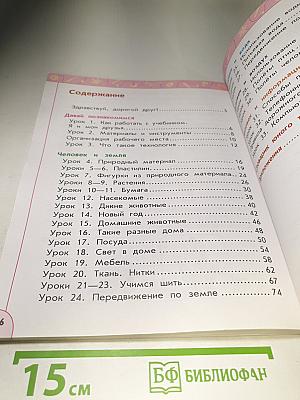 Содержание
Здравствуй, дорогой друг!
Давай познакомимся
Урок 1. Как работать с учебником.
Я и мои друзья 6
Урок 2. Материалы и инструменты 8
Организация рабочего места 10
Урок 3. Что такое технология 12
Человек и земля
Урок 4. Природный материал 16
Уроки 5—6. Пластилин 19
Урок 7. Фигурки из природного материала 24
Уроки 8—9. Растения 26
Уроки 10—11. Бумага
Урок 12. Насекомые 38
Урок 13. Дикие животные 40
Урок 14. Новый год 42
Урок 15. Домашние животные 46
Урок 16. Такие разные дома 48
Урок 17. Посуда 50
Урок 18. Свет в доме 54
Урок 19. Мебель 58
Урок 20. Ткань. Нитки 62
Уроки 21—23. Учимся шить 67
Урок 24. Передвижение по земле 74
15 см
БФ БИБЛИОФАН